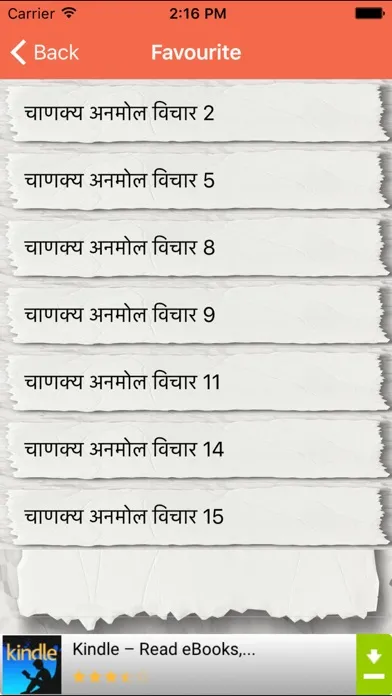 Carrier 2:16 PM
Back Favourite
चाणक्य अनमोल विचार 2
चाणक्य अनमोल विचार 5
चाणक्य अनमोल विचार 8
चाणक्य अनमोल विचार 9
चाणक्य अनमोल विचार 11
चाणक्य अनमोल विचार 14
चाणक्य अनमोल विचार 15
kindle Kindle – Read eBooks,...